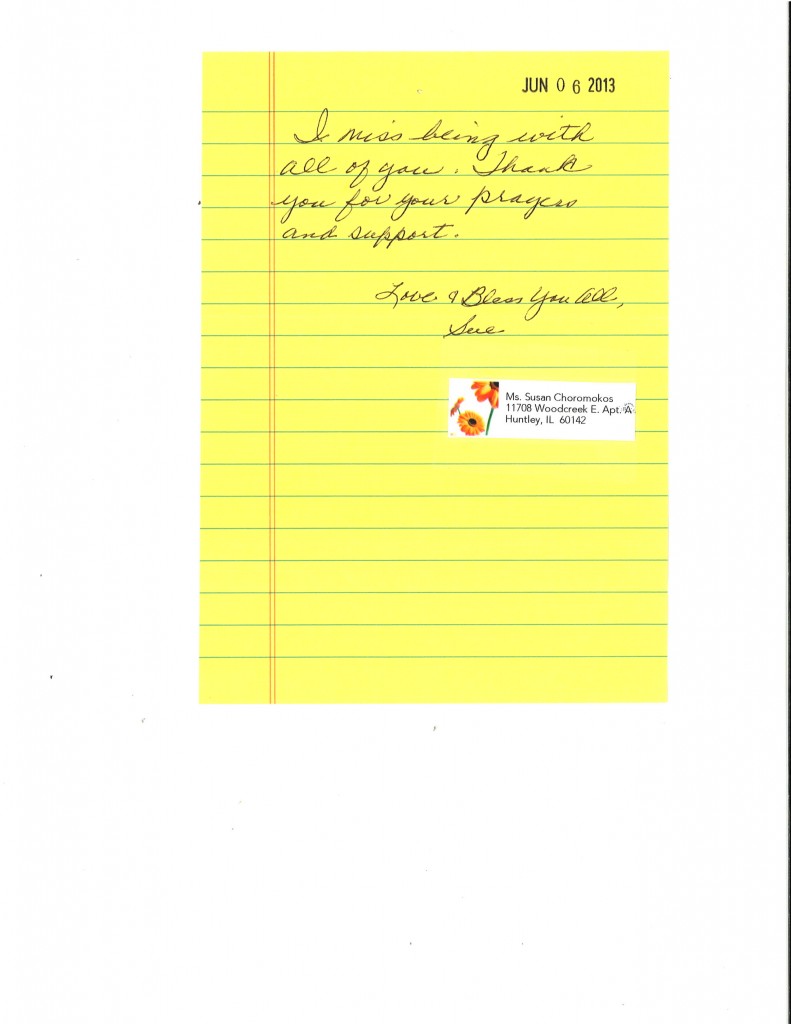 JUN 06 2013
I miss being with
all of you. Thank
you for your prayers
and support.
Love & Bless You All,
Sue
Ms. Susan Choromokos
11708 Woodcreek E. Apt. A
Huntley, IL 60142